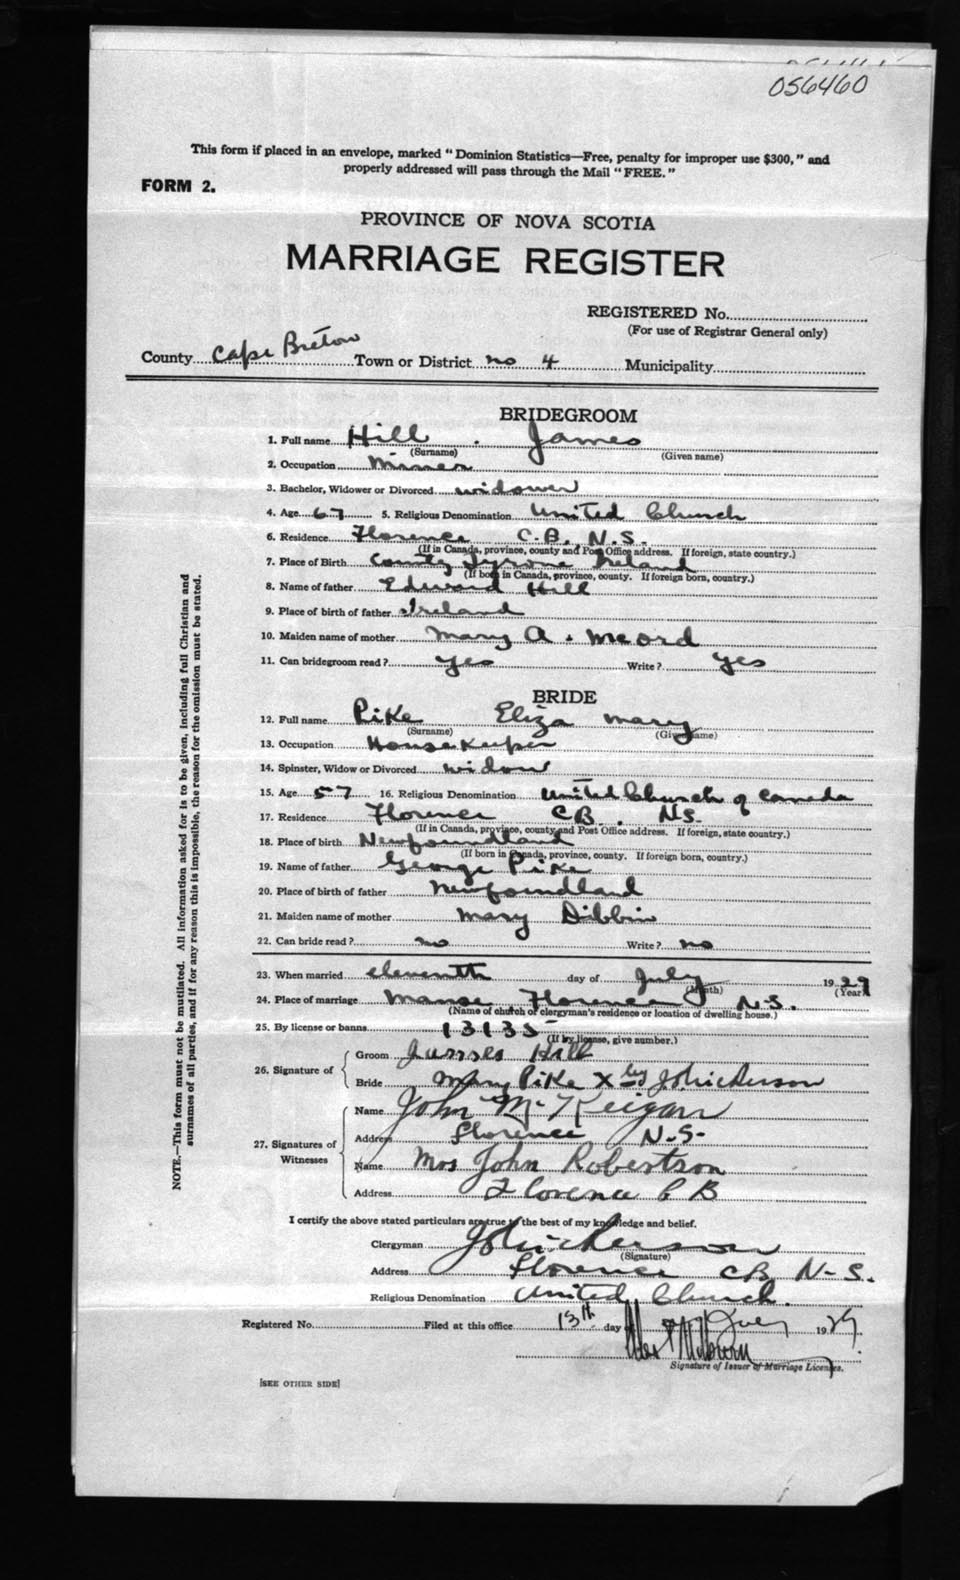 056460
This form if placed in an envelope, marked "Dominion Statistics—Free, penalty for improper use $300," and
properly addressed will pass through the Mail "FREE."
FORM 2.
PROVINCE OF NOVA SCOTIA
MARRIAGE REGISTER
REGISTERED No.
(For use of Registrar General only)
County Cape Breton Town or District no 4 Municipality
BRIDEGROOM
1. Full name Hill . James
(Surname) (Given name)
2. Occupation Miner
3. Bachelor, Widower or Divorced widower
4. Age 67 5. Religious Denomination United Church
6. Residence Florence C.B. N.S.
(If in Canada, province, county and Post Office address. If foreign, state country.)
7. Place of Birth County Tyrone Ireland
(If born in Canada, province, county. If foreign born, country.)
8. Name of father Edward Hill
9. Place of birth of father Ireland
10. Maiden name of mother Mary A. Meord
11. Can bridegroom read? yes Write? yes
BRIDE
12. Full name Pike Eliza Mary
(Surname) (Given name)
13. Occupation Housekeeper
14. Spinster, Widow or Divorced widow
15. Age 57 16. Religious Denomination United Church of Canada
17. Residence Florence CB. N.S.
(If in Canada, province, county and Post Office address. If foreign, state country.)
18. Place of birth Newfoundland
(If born in Canada, province, county. If foreign born, country.)
19. Name of father George Pike
20. Place of birth of father Newfoundland
21. Maiden name of mother Mary Dibbin
22. Can bride read? no Write? no
23. When married eleventh day of July 1929
(Month) (Year)
24. Place of marriage Manse, Florence N.S.
(Name of church or clergyman's residence or location of dwelling house.)
25. By license or banns 13135
(If by license, give number.)
26. Signature of
Groom James Hill
Bride Mary Pike X by
27. Signatures of Witnesses
Name John McKeigan
Address Florence N.S.
Name Mrs John Robertson
Address Florence C B
I certify the above stated particulars are true to the best of my knowledge and belief.
Clergyman
(Signature)
Address Florence CB N-S.
Religious Denomination United Church.
Registered No. Filed at this office 13th day of July 1929.
Signature of Issuer of Marriage Licenses.
[SEE OTHER SIDE]
NOTE.—This form must not be mutilated. All information asked for is to be given, including full Christian and
surnames of all parties, and if for any reason this is impossible, the reason for the omission must be stated.